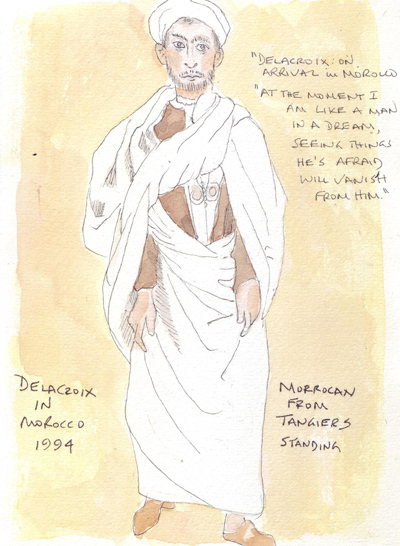 "DELACROIX: ON
ARRIVAL in MOROCCO
"AT THE MOMENT I
AM LIKE A MAN
IN A DREAM,
SEEING THINGS
HE'S AFRAID
WILL VANISH
FROM HIM."
DELACROIX
IN
MOROCCO
1994
MORROCAN
FROM
TANGIERS
STANDING